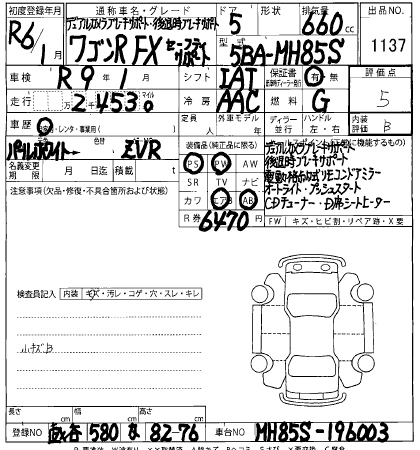 初度登録年月 通称車名・グレード ドア 形状 排気量 出品NO
デュアルカメラブレーキサポート・後退時ブレーキサポート
R6/1 ワゴンR FX セーフティサポート 5 660cc 1137
5BA-MH85S
車検 R9年1月 シフト IAT 保証書 有・無 評価点
走行 2,453 マイル 冷房 AAC 燃料 G 5
車歴 自家用・レンタ・事業用( ) 定員 人 外車モデル 年 ディーラー 並行 ハンドル 左・右 内装評価 B
パールホワイト ZVR
名義変更期限 月 日 積載 t
装備品(純正品に限る)
PS PW AW
SR TV ナビ
カワ エアB AB
R券 6470円
デュアルカメラブレーキサポート
後退時ブレーキサポート
電動格納式リモコンドアミラー
オートライト・プッシュスタート
CDチューナー・D席シートヒーター
注意事項(欠品・修復・不具合箇所および状態)
FW キズ・ヒビ割・リペア跡・X要
検査員記入 内装 キズ・汚レ・コゲ・穴・スレ・キレ
小キズB
長さ cm 幅 cm 高さ cm
登録NO 580 な 82-76 車台NO MH85S-196003